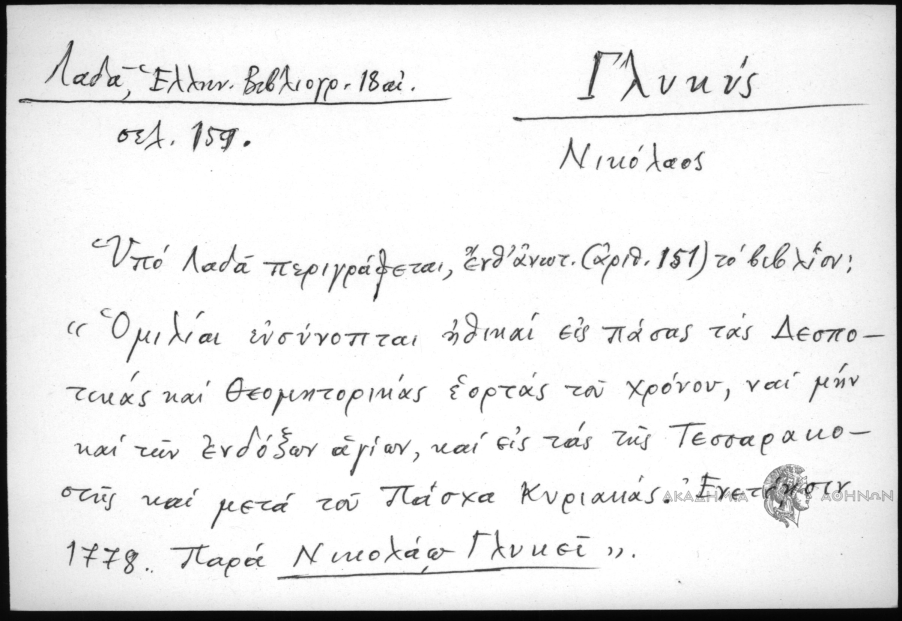 Λαδᾶ, Ἑλλην. Βιβλιογρ. 18 αἰ.
σελ. 159.
Γλυκύς
Νικόλαος
Ὑπό Λαδᾶ περιγράφεται, ἔνθ' ἀνωτ. (ἀριθ. 151) τό βιβλίον:
« Ὁμιλίαι εὐσύνοπται ἠθικαί εἰς πάσας τάς Δεσπο-
τικάς καί Θεομητορικάς ἑορτάς τοῦ χρόνου, ναί μήν
καί τῶν ἐνδόξων ἁγίων, καί εἰς τάς τῆς Τεσσαρακο-
στῆς καί μετά τοῦ Πάσχα Κυριακάς. Ἐνετίῃσιν
1778. Παρά Νικολάῳ Γλυκεῖ ».
ΑΚΑΔΗΜΙΑ ΑΘΗΝΩΝ